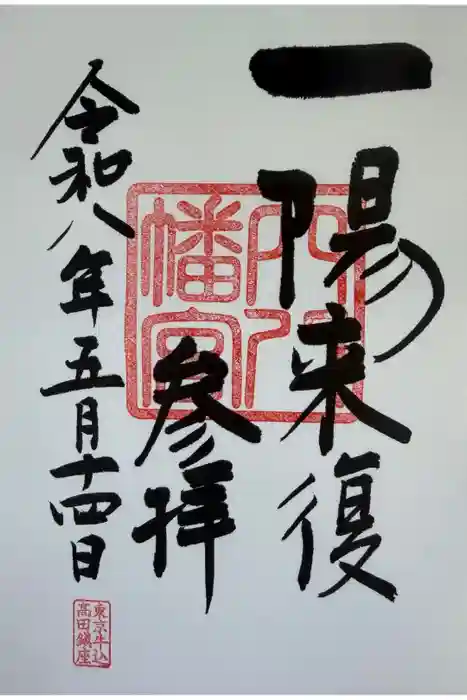 一陽来復
参拝
令和八年五月十四日
八幡宮
東京牛込
高田鎮座